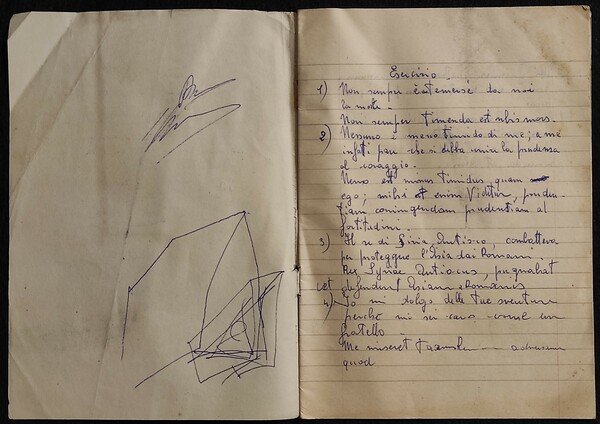 Esercizio.
1) Non sempre è temersi da noi
la morte.
Non semper timenda est nobis mors.
2) Nessuno è meno timido di me; a me
infatti pare che si debba unire la prudenza
al coraggio.
Nemo est minus timidus, quam
ego; mihi et enim videtur, pruden-
tiam coniungendam prudentiam al
fortitudini.
3) Il re di Siria Antioco, combatteva
per proteggere l'Asia dai Romani
Rex Syriae Antiocus, pugnabat
ut defenderet Asiam a Romanis
4) Io mi dolgo delle tue sventure
perché mi sei caro come un
fratello.
Me miseret
quod